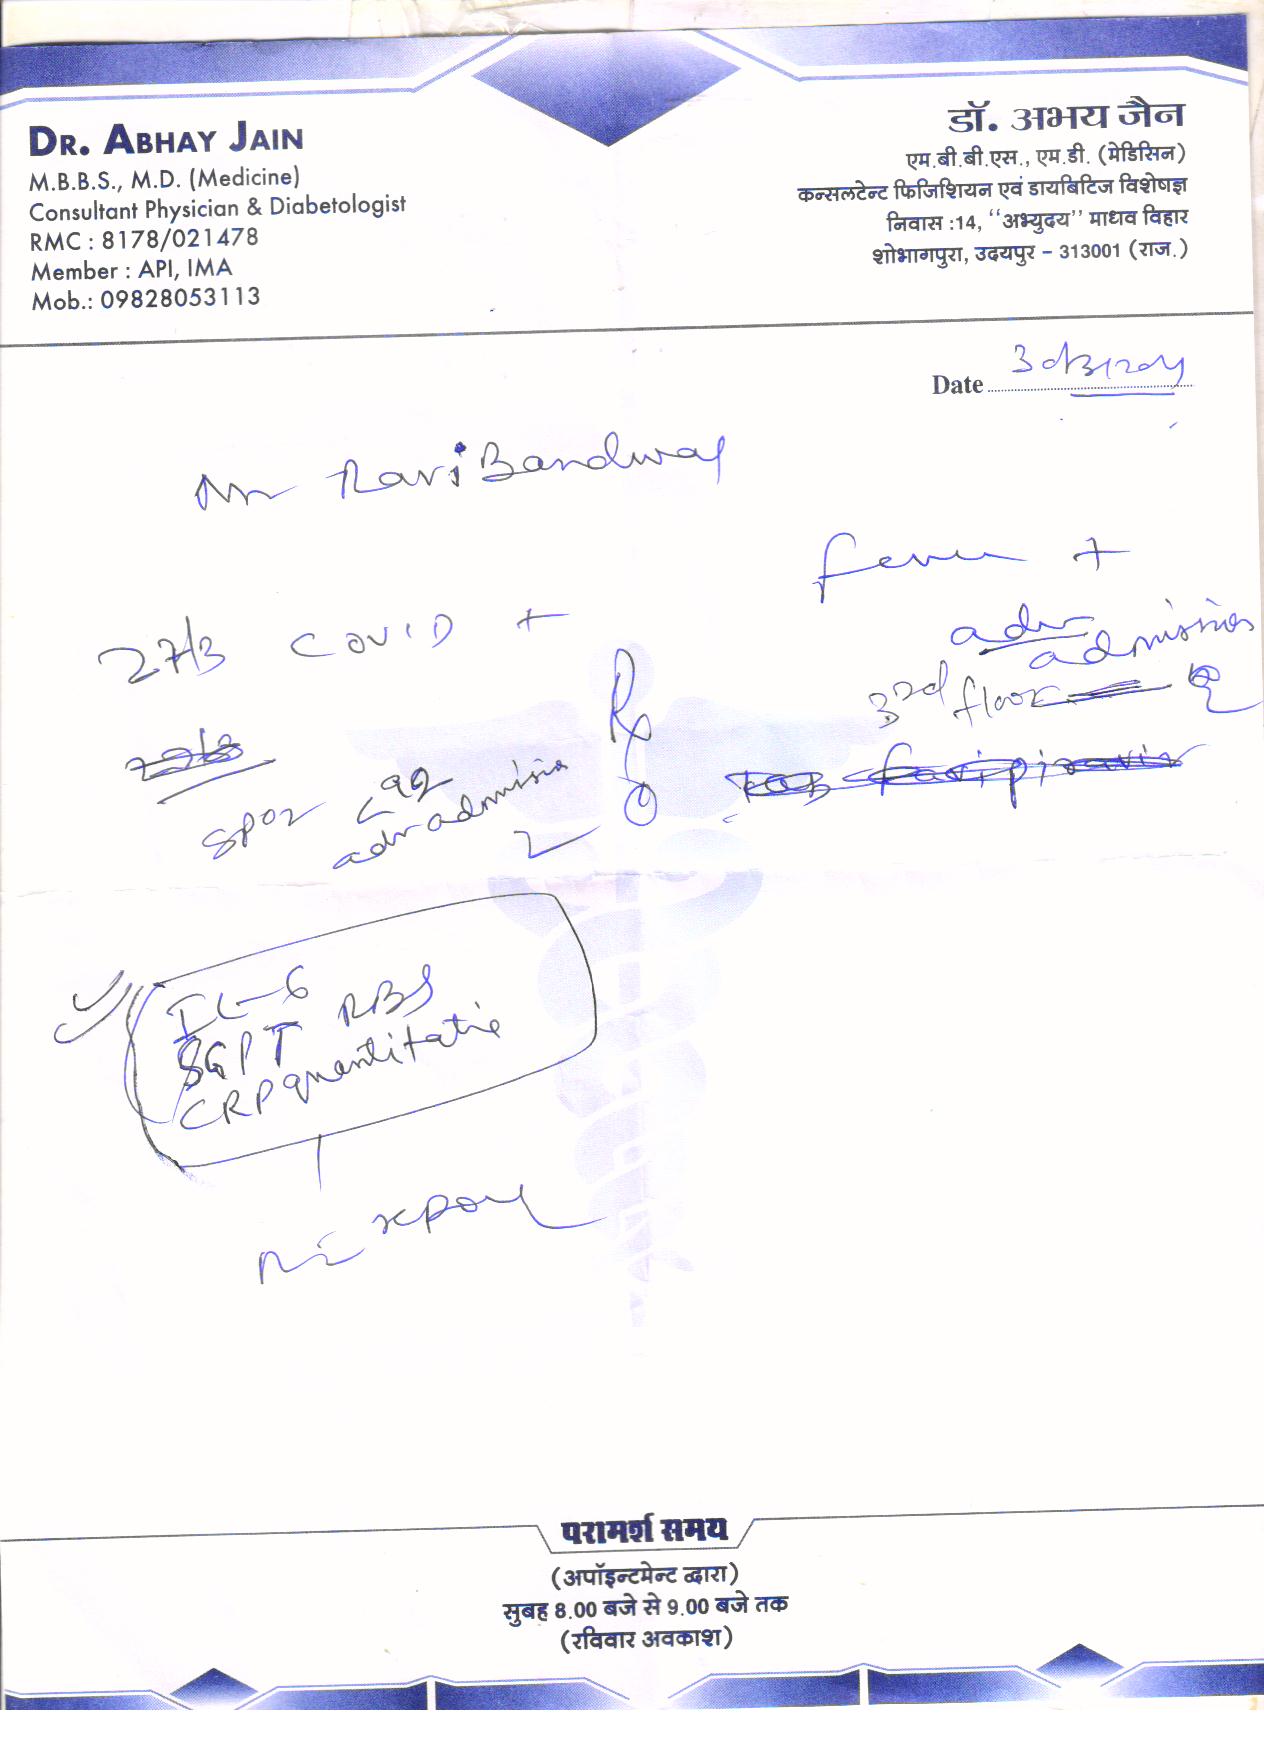 DR. ABHAY JAIN
M.B.B.S., M.D. (Medicine)
Consultant Physician & Diabetologist
RMC : 8178/021478
Member : API, IMA
Mob.: 09828053113
डॉ. अभय जैन
एम.बी.बी.एस., एम.डी. (मेडिसिन)
कन्सलटेन्ट फिजिशियन एवं डायबिटिज विशेषज्ञ
निवास :14, ‘‘अभ्युदय’’ माधव विहार
शोभागपुरा, उदयपुर – 313001 (राज.)
Date
Mr Ravi
fever +
27/3 COVID +
adv
admission
3rd floor
Rx
SPO2 <92
adv admission
Tab favipiravir
IL-6
SGPT RBS
CRP quantitative
परामर्श समय
(अपॉइन्टमेन्ट द्वारा)
सुबह 8.00 बजे से 9.00 बजे तक
(रविवार अवकाश)